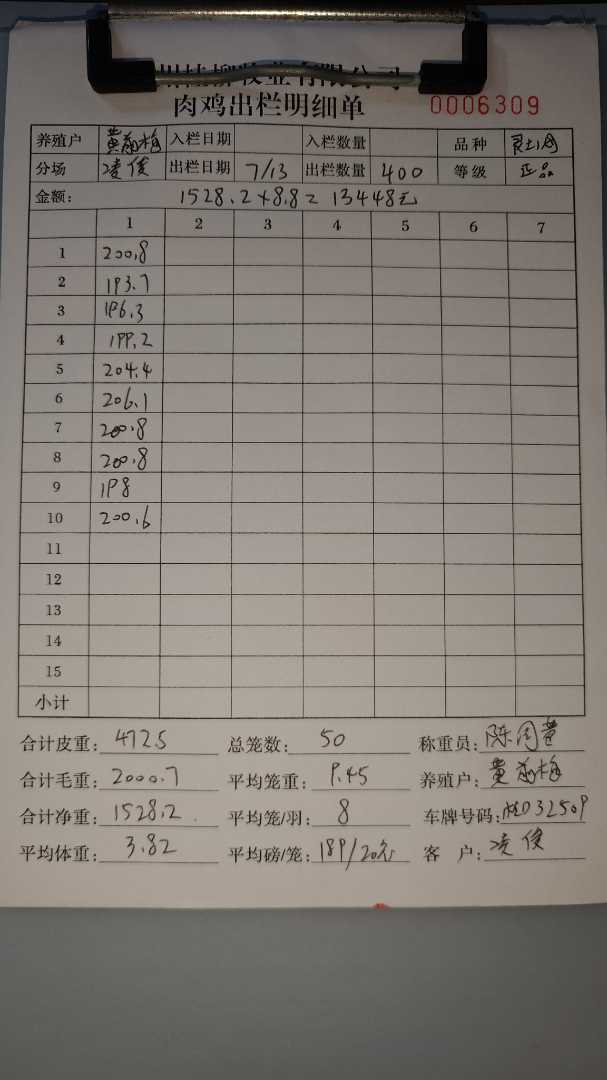 桂柳牧业有限公司
肉鸡出栏明细单 0006309
养殖户 黄 梅 入栏日期 入栏数量 品种
分场 凌俊 出栏日期 7/13 出栏数量 400 等级 正品
金额: 1528.2×8.8=13448元
1 2 3 4 5 6 7
1 200.8
2 193.7
3 196.3
4 199.2
5 204.4
6 206.1
7 200.8
8 200.8
9 198
10 200.6
11
12
13
14
15
小计
合计皮重: 472.5 总笼数: 50 称重员: 陈
合计毛重: 2000.7 平均笼重: 9.45 养殖户: 黄 梅
合计净重: 1528.2 平均笼/羽: 8 车牌号码: 桂D32509
平均体重: 3.82 平均磅/笼: 189/20元 客户: 凌俊